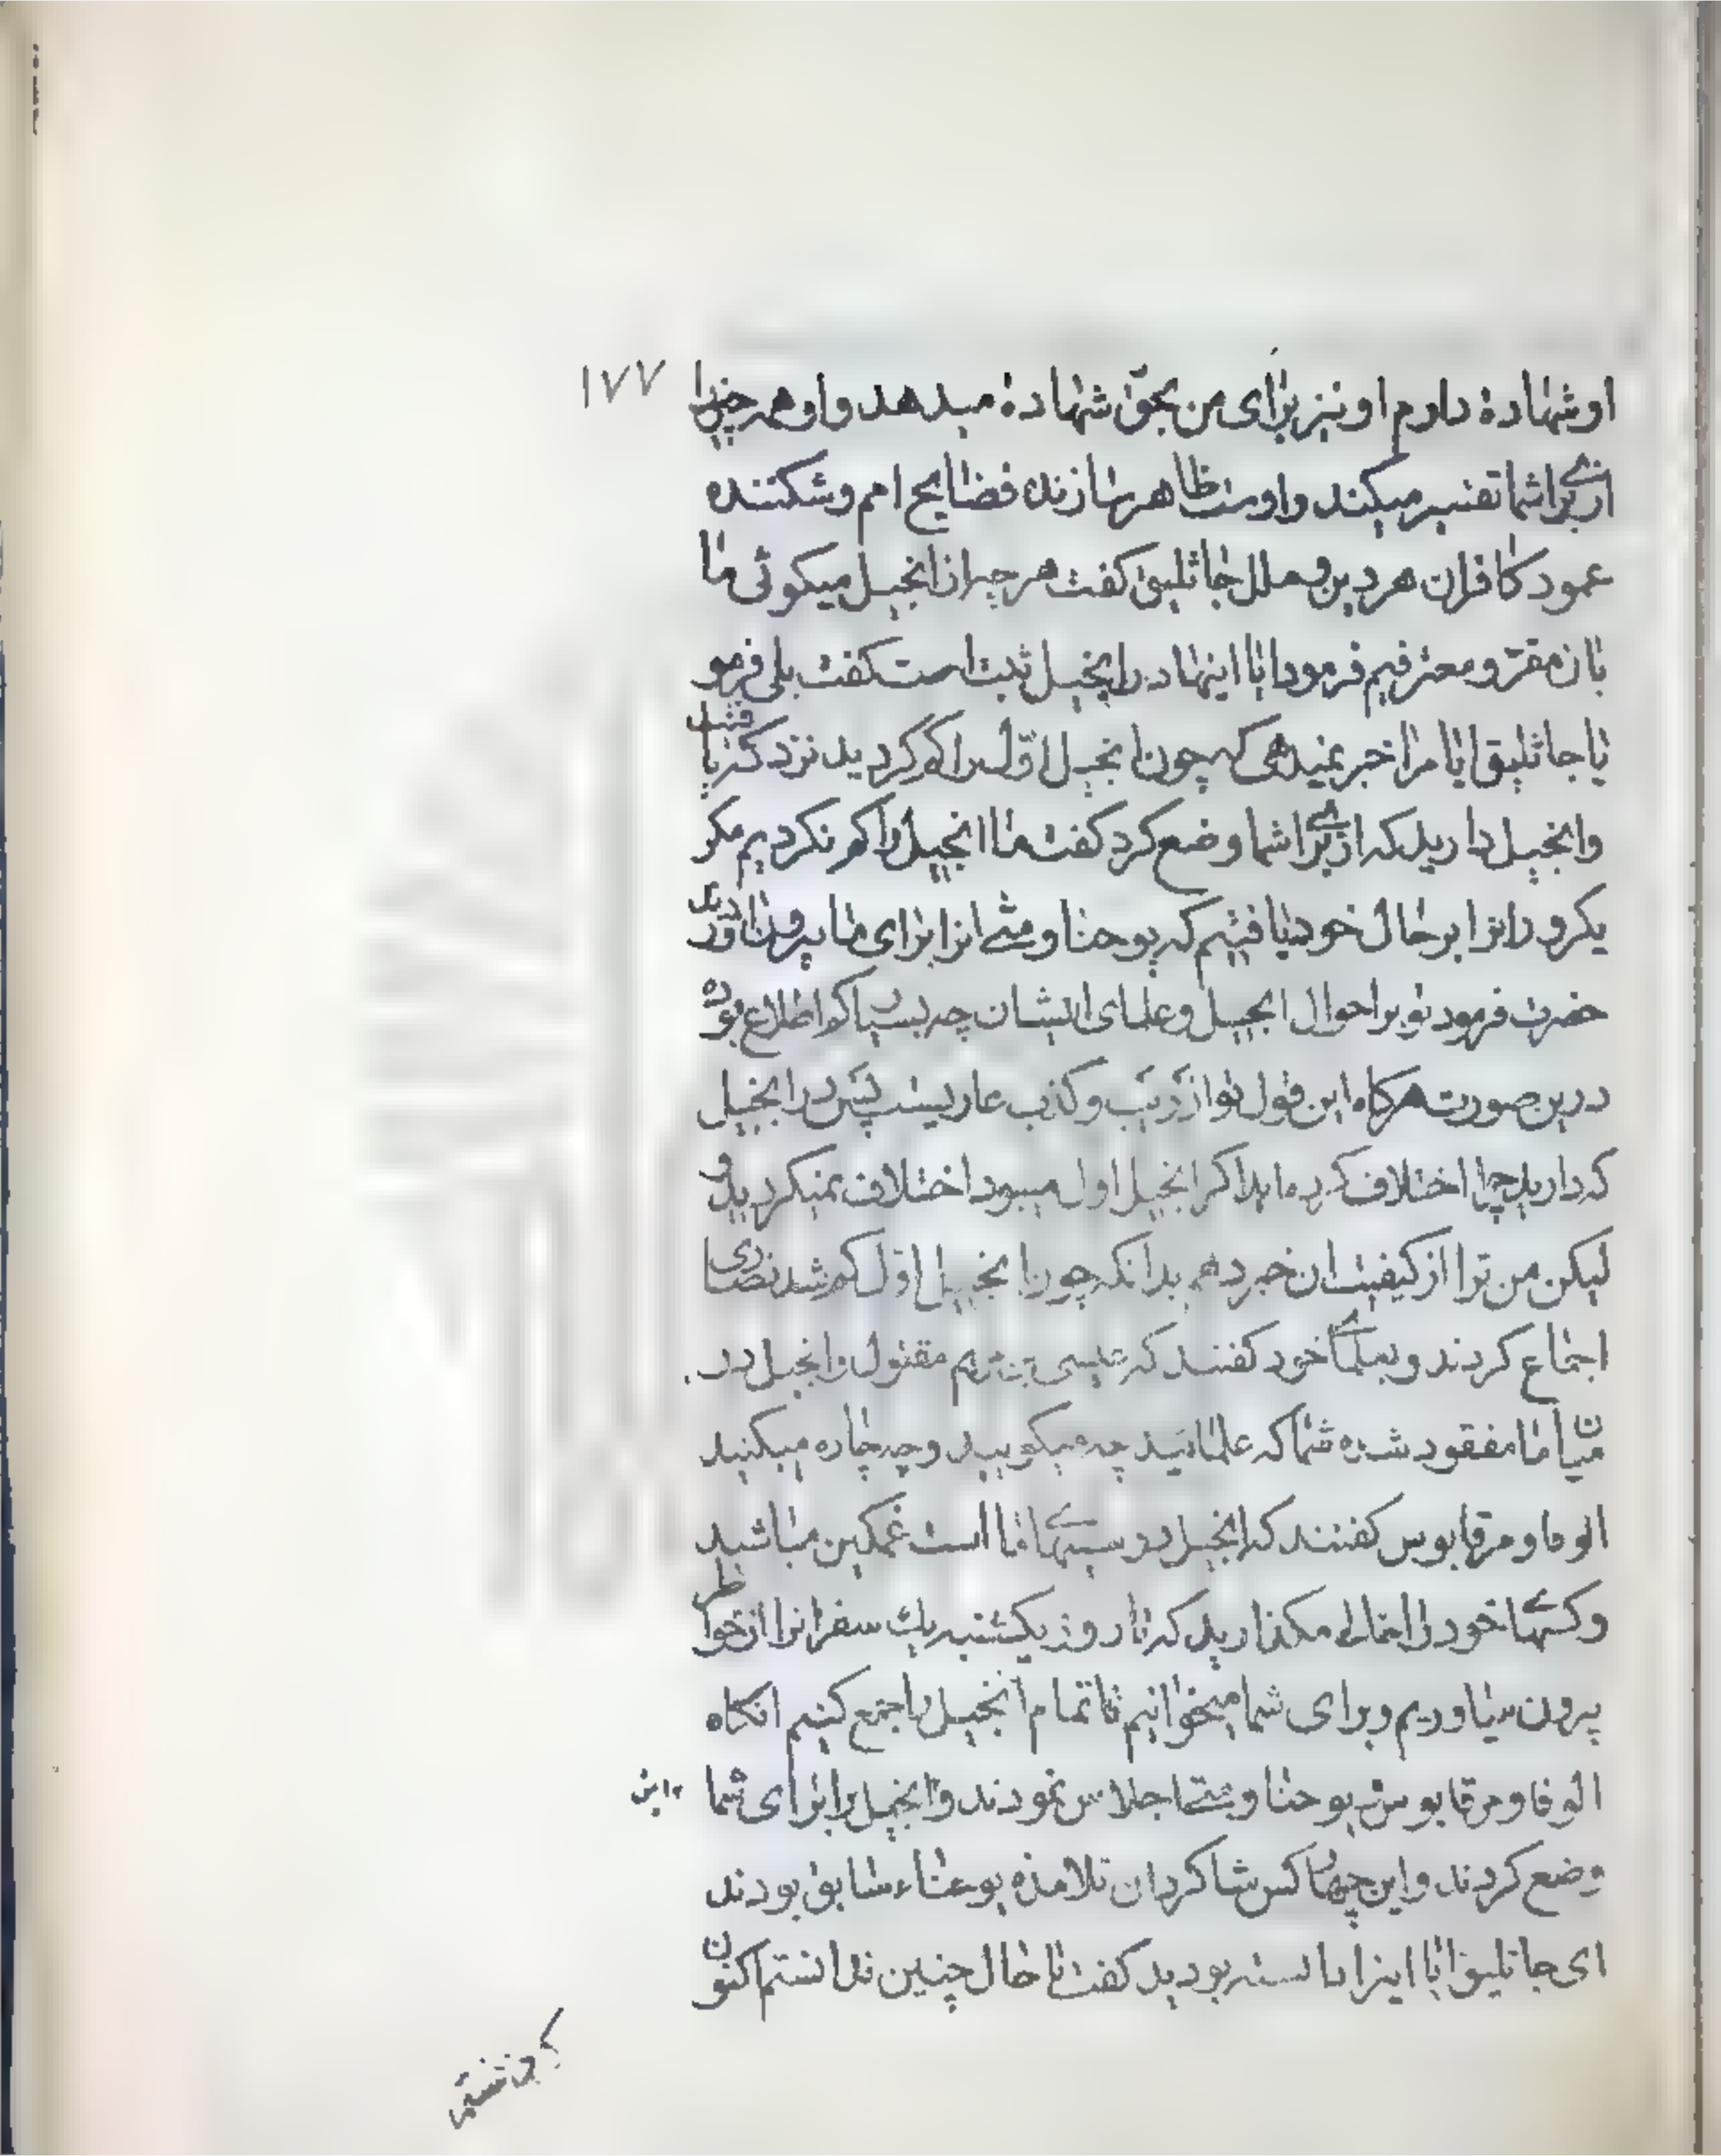 ۱۷۷
او شهادة دارم او نیز برای من بحق شهادة میدهد و او همه چیزرا
ازبرای شما تفسیر میکند و اوست ظاهر سازنده فضایح امم و شکننده
عمود کافران هر دین و ملل جاثلیق کفت هر چه از انجیل میکوئی ما
بان مقر و معترفیم فرمود ایا اینها در انجیل ثبت است کفت بلی فرمو
یا جاثلیق ایا مرا خبر نمیدهی که چون انجیل اول را کم کردید نزد که یافتید
و انجیل دارید که ازبرای شما وضع کرد کفت ما انجیل را کم نکردیم مکر
یکروز انرا بر حال خود یافتیم که یوحنا و متی انرا برای ما بیرون اوردند
حضرت فرمود تو بر احوال انجیل و علمای ایشان چه بسیار کم اطلاع بوده
درین صورت هرکاه این قول تو از ریب و کذب عاریست پس در انجیل
که دارید چرا اختلاف کرده اید اکر انجیل اول میبود اختلاف نمیکردید و
لیکن من ترا از کیفیت ان خبر دهم بدانکه چون انجیل اول کم شد نصاری
اجماع کردند و بعلمای خود کفتند که عیسی بن مریم مقتول و انجیل در
میان ما مفقود شده شما که علمائید چه میکویید و چه چاره میکنید
الوفا و مرقابوس کفتند که انجیل در سینهای ما است غمکین مباشید
و کنیسهای خود را خالی مکذارید که تا روز یکشنبه یک سفر انرا از خواطر
بیرون بیاوریم و برای شما میخوانیم تا تمام انجیل را جمع کنیم انکاه
الوفا و مرقابوس و یوحنا و متی اجلاس نمودند و انجیل را برای شما
این
وضع کردند و این چهار کس شاکردان تلامذه یوحنا سابق بودند
ای جاثلیق ایا اینرا دانسته بودید کفت تا حال چنین ندانستم اکنون
که دانستم